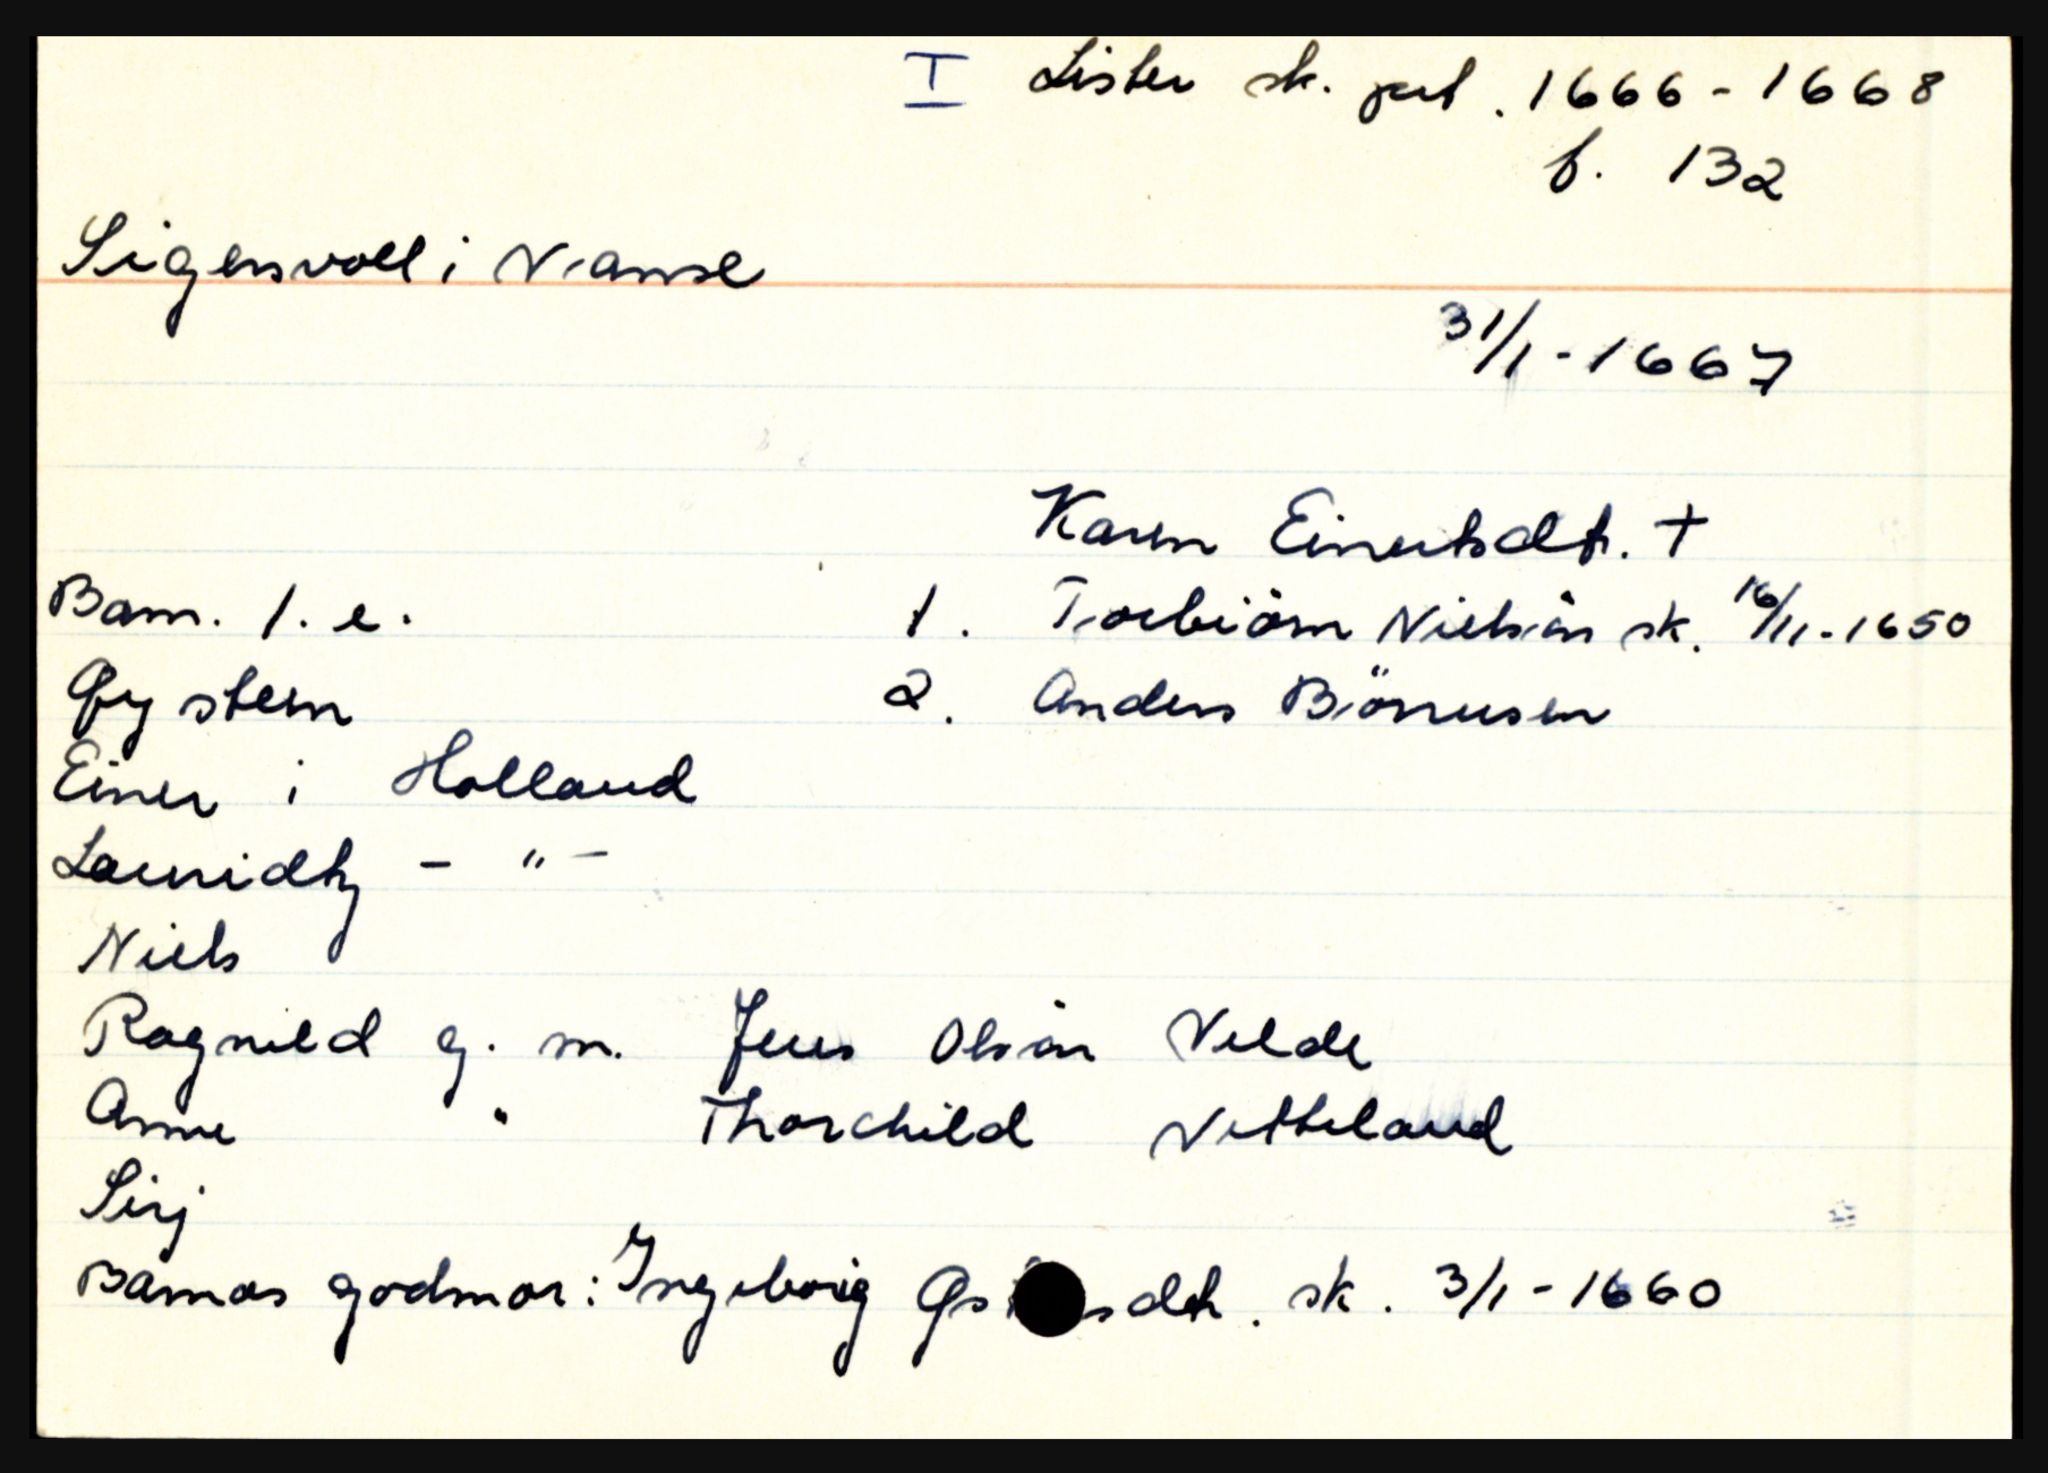 I Lister sk. prt. 1666-1668
f. 132
Sigersvoll i Vanse
31/1-1667
Karen Einertsdtr. +
Barn. 1. e. 1. Torbiörn Nielsön sk. 16/11-1650
Øystein 2. Anders Biörnsen
Einer i Holland
Lauridtz - " -
Niels
Ragnild g. m. Jens Olsön Velde
Anne " Thorchild Vetteland
Sirj
Barnas godmor: Ingeborig sdtr. sk. 3/1-1660